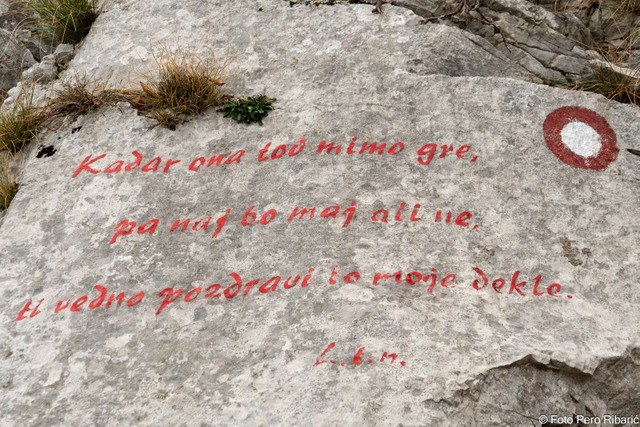 Kadar ona tod mimo gre,
pa naj bo maj ali ne,
ti vedno pozdravi to moje dekle.
L.t.m.
© Foto Pero Ribarić